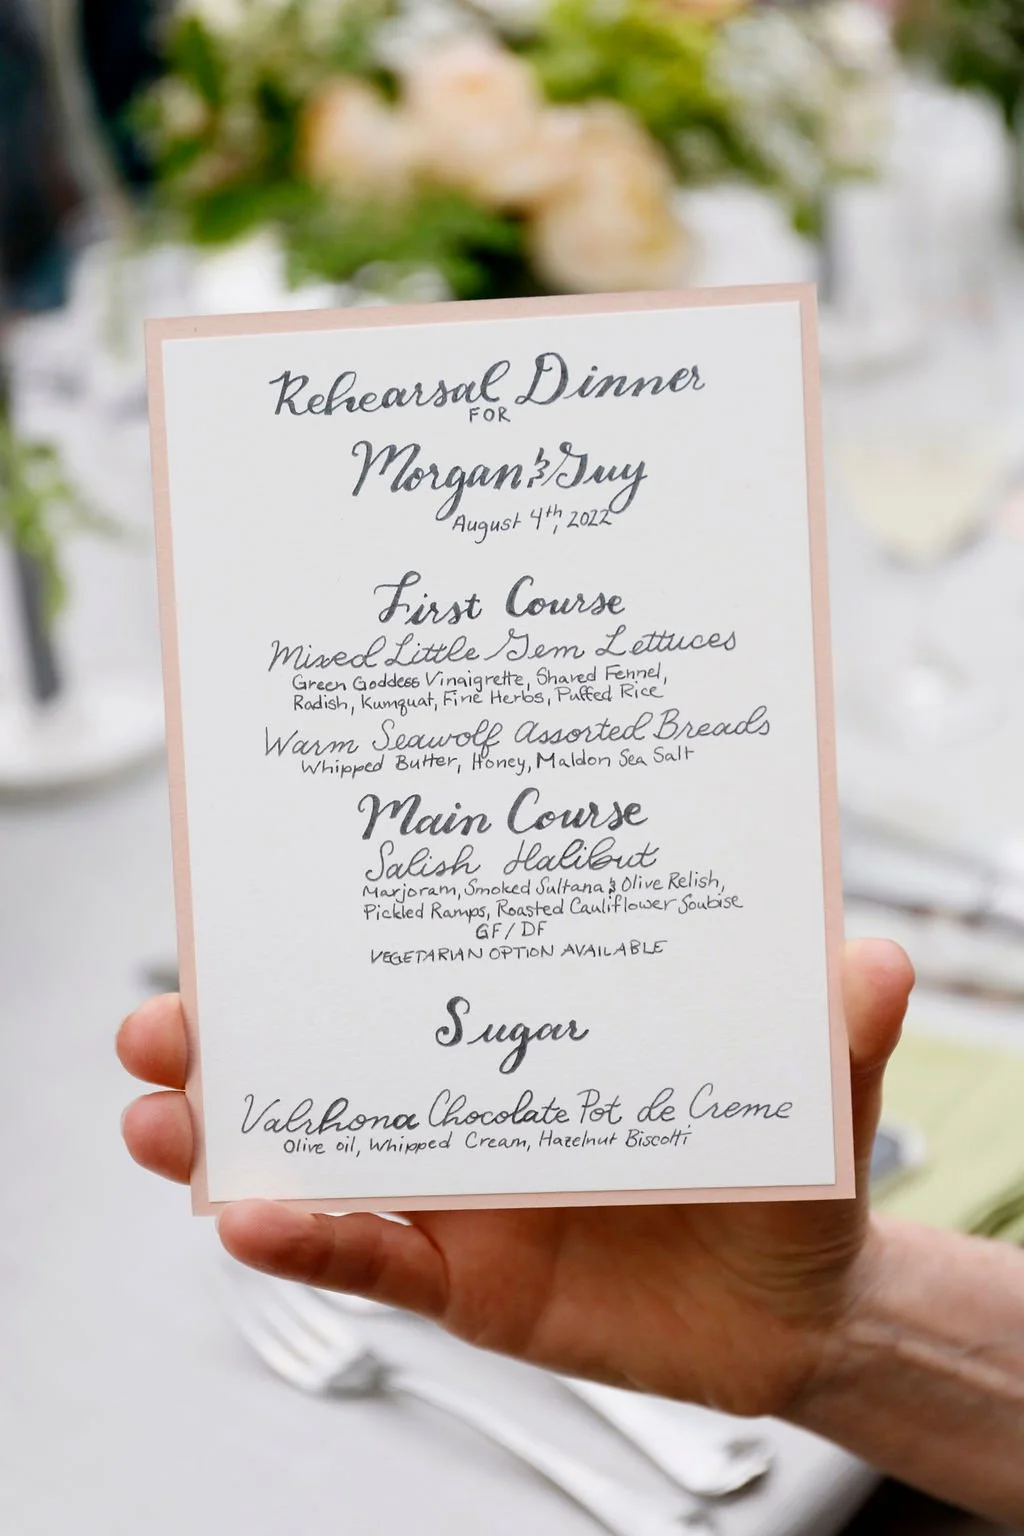 Rehearsal Dinner
FOR
Morgan & Guy
August 4th, 2022
First Course
Mixed Little Gem Lettuces
Green Goddess Vinaigrette, Shared Fennel,
Radish, Kumquat, Fine Herbs, Puffed Rice
Warm Seawolf Assorted Breads
Whipped Butter, Honey, Maldon Sea Salt
Main Course
Salish Halibut
Marjoram, Smoked Sultana & Olive Relish,
Pickled Ramps, Roasted Cauliflower Soubise
GF/DF
VEGETARIAN OPTION AVAILABLE
Sugar
Valrhona Chocolate Pot de Creme
Olive oil, Whipped Cream, Hazelnut Biscotti